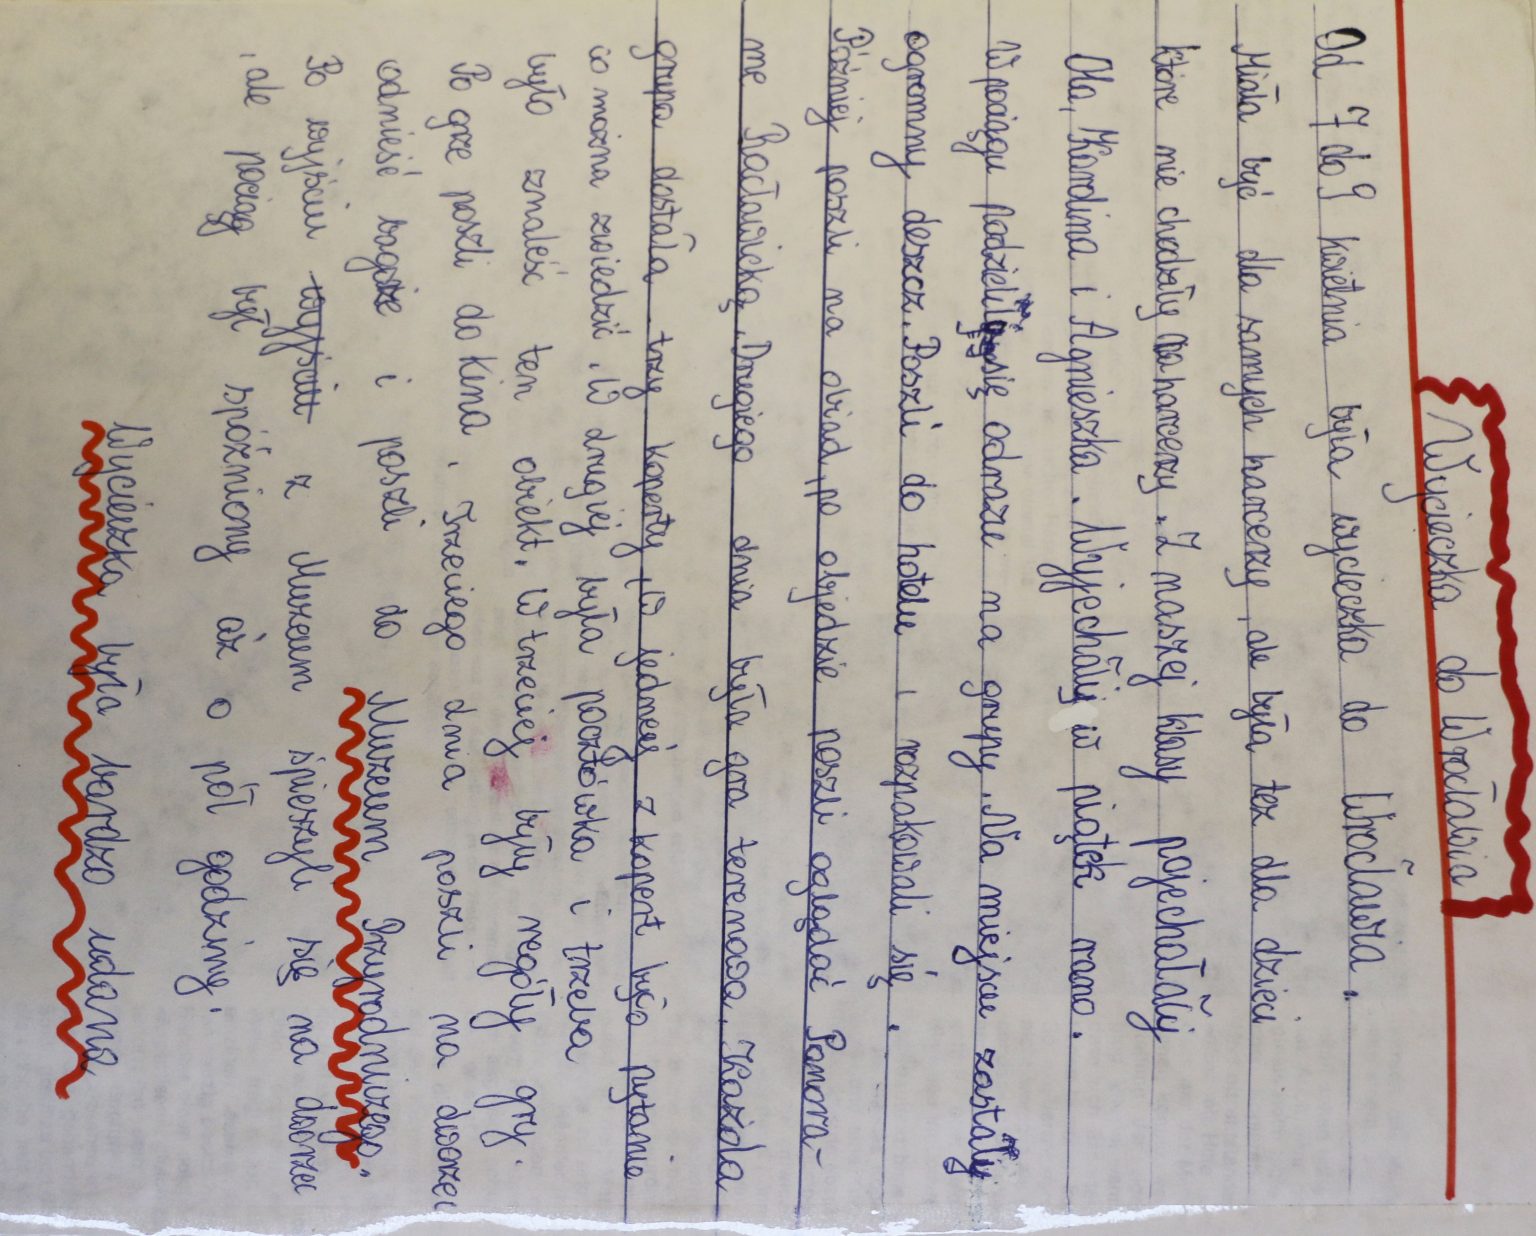 Wycieczka do Wrocławia
Od 7 do 9 kwietnia była wycieczka do Wrocławia.
Miała być dla samych harcerzy, ale była tez dla dzieci
które nie chodziły na harcerzy. Z naszej klasy pojechały
Ola, Karolina i Agnieszka. Wyjechały w piątek rano.
W pociągu podzieliły się odrazu na grupy. Na miejscu zastały
ogromny deszcz. Poszli do hotelu i rozpakowali się.
Później poszli na obiad, po objedzie poszli oglądać Panora-
me Racławicką. Drugiego dnia była gra terenowa. Każda
grupa dostała trzy koperty. W jednej z kopert było pytanie
co można zwiedzić. W drugiej była pocztówka i trzeba
było znaleść ten obiekt. W trzeciej były reguły gry.
Po grze poszli do kina. Trzeciego dnia poszli na dworzec
odnieść bagaże i poszli do Muzeum Przyrodniczego.
Po wyjściu wyjściu z Muzeum śpieszyli się na dworzec
, ale pociąg był spóźniony aż o pół godziny.
Wycieczka była bardzo udana